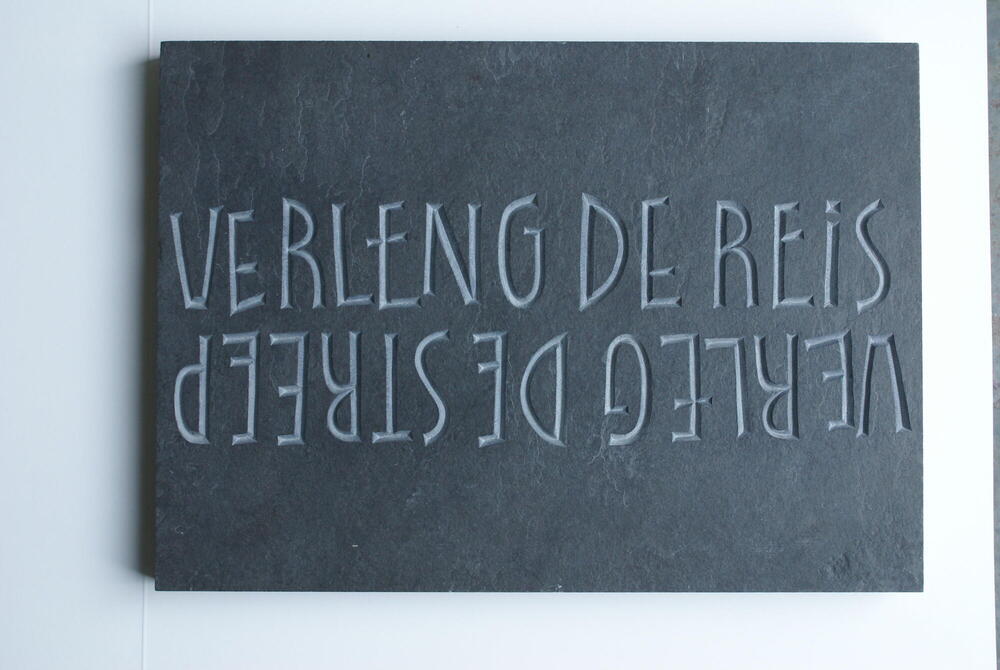 VERLENG DE REiS
VERLEG DE STREEP